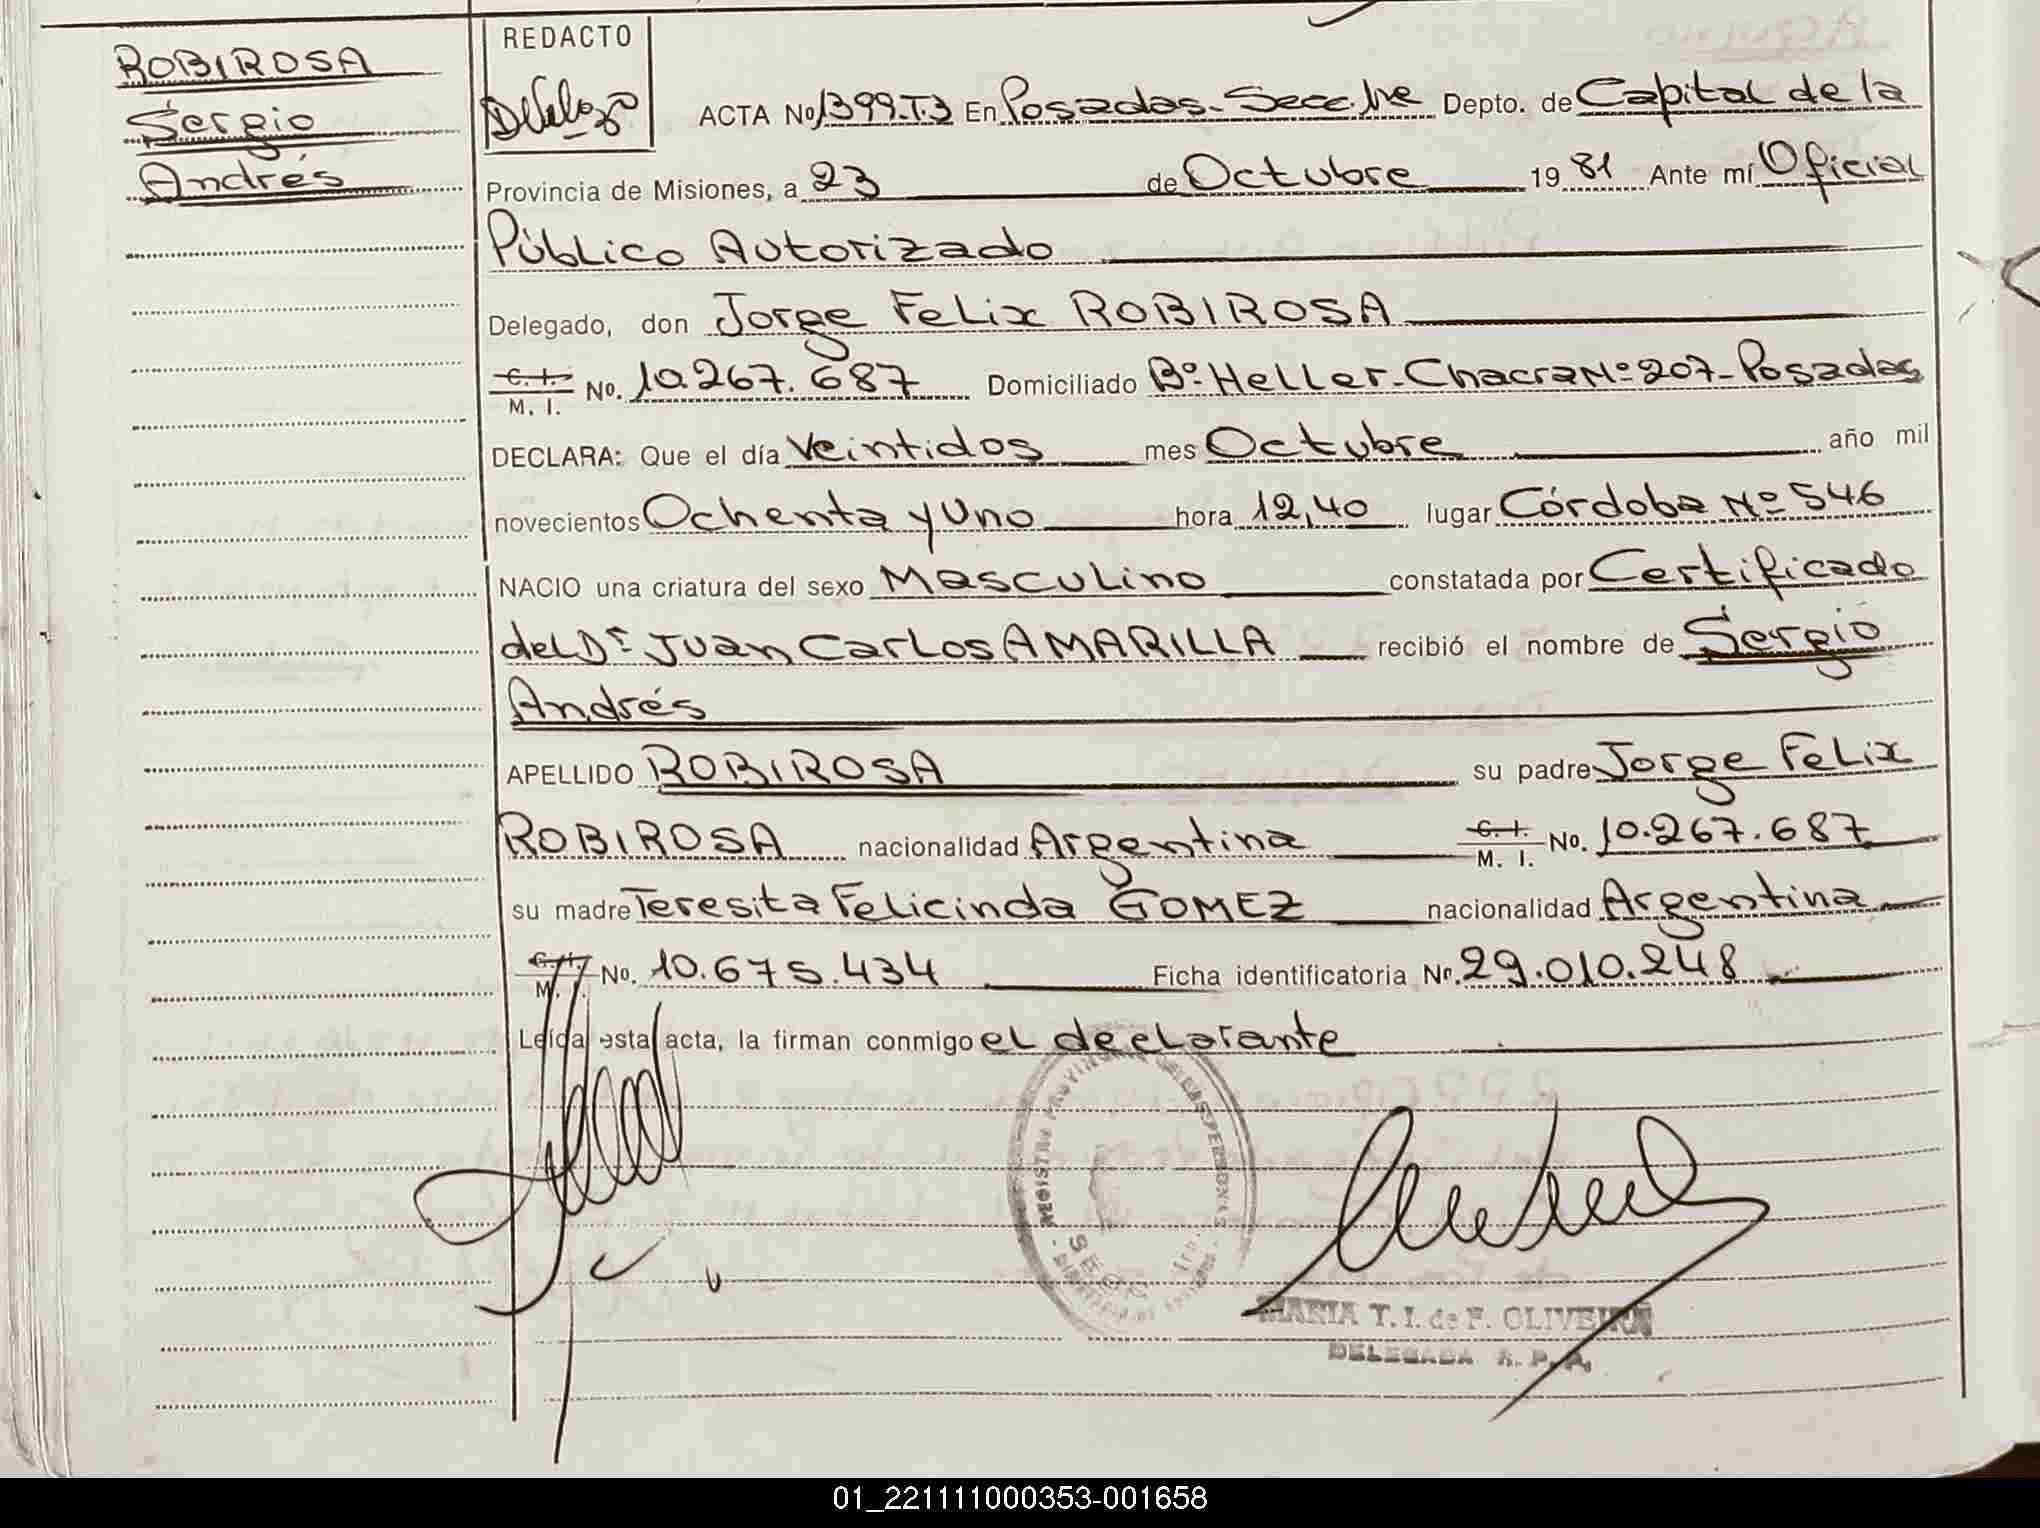 ROBIROSA
Sergio
Andrés
REDACTO
ACTA No 1399.T3 En Posadas-Secc. 1ra Depto. de Capital de la
Provincia de Misiones, a 23 de Octubre 19 81 Ante mí Oficial
Público Autorizado
Delegado, don Jorge Felix ROBIROSA
C. I.
M. I. No. 10.267.687 Domiciliado Bº Heller-Chacra Nº 207-Posadas
DECLARA: Que el día Veintidos mes Octubre año mil
novecientos Ochenta y Uno hora 12,40 lugar Córdoba Nº 546
NACIO una criatura del sexo Masculino constatada por Certificado
del Dr Juan Carlos AMARILLA recibió el nombre de Sergio
Andrés
APELLIDO ROBIROSA su padre Jorge Felix
ROBIROSA nacionalidad Argentina C. I.
M. I. No. 10.267.687
su madre Teresita Felicinda GOMEZ nacionalidad Argentina
C. I.
M. I. No. 10.675.434 Ficha identificatoria No. 29.010.248
Leída esta acta, la firman conmigo el declarante
MARIA T. I. de F. OLIVEIRA
DELEGADA R. P. P.
01_221111000353-001658